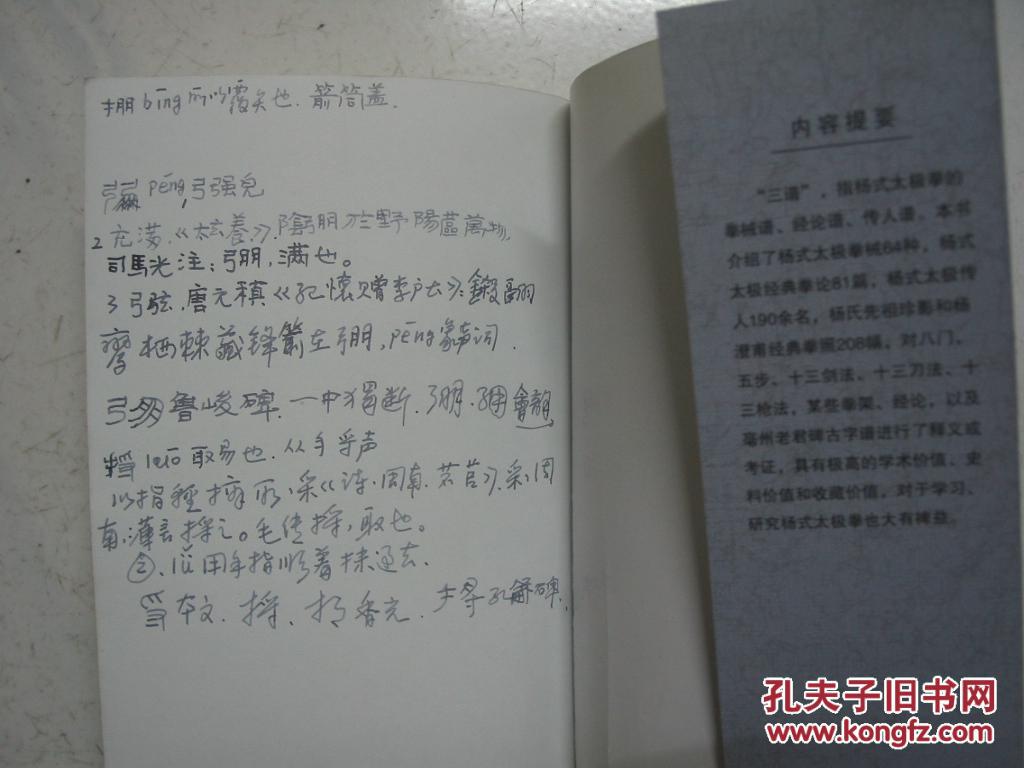 掤 bīng 所以覆矢也. 箭筒盖.
弸 pēng, 弓强皃
2 充满.《太玄·养》. 陰弸于野 陽蓲萬物,
司馬光注: 弸, 满也。
3 弓弦. 唐元稹《纪怀赠李户曹》: 翮
齊 栖棘 藏锋箭在弸, pēng 象声词.
魯峻碑. 一中獨断. 弸.
捋 luō 取易也. 从手 寽声
以指 采《诗·周南·芣苢》. 采, 周
南. 薄言捋之。毛传捋, 取也。
②. lǚ 用手指顺着抹过去.
本文. 捋. 孔 碑.
内容提要
“三谱”,指杨式太极拳的
拳械谱、经论谱、传人谱。本书
介绍了杨式太极拳械64种,杨式
太极经典拳论81篇,杨式太极传
人190余名,杨氏先祖珍影和杨
澄甫经典拳照208幅,对八门、
五步、十三剑法、十三刀法、十
三枪法,某些拳架、经论,以及
亳州老君碑古字谱进行了释义或
考证,具有极高的学术价值、史
料价值和收藏价值,对于学习、
研究杨式太极拳也大有裨益。
孔夫子旧书网
www.kongfz.com